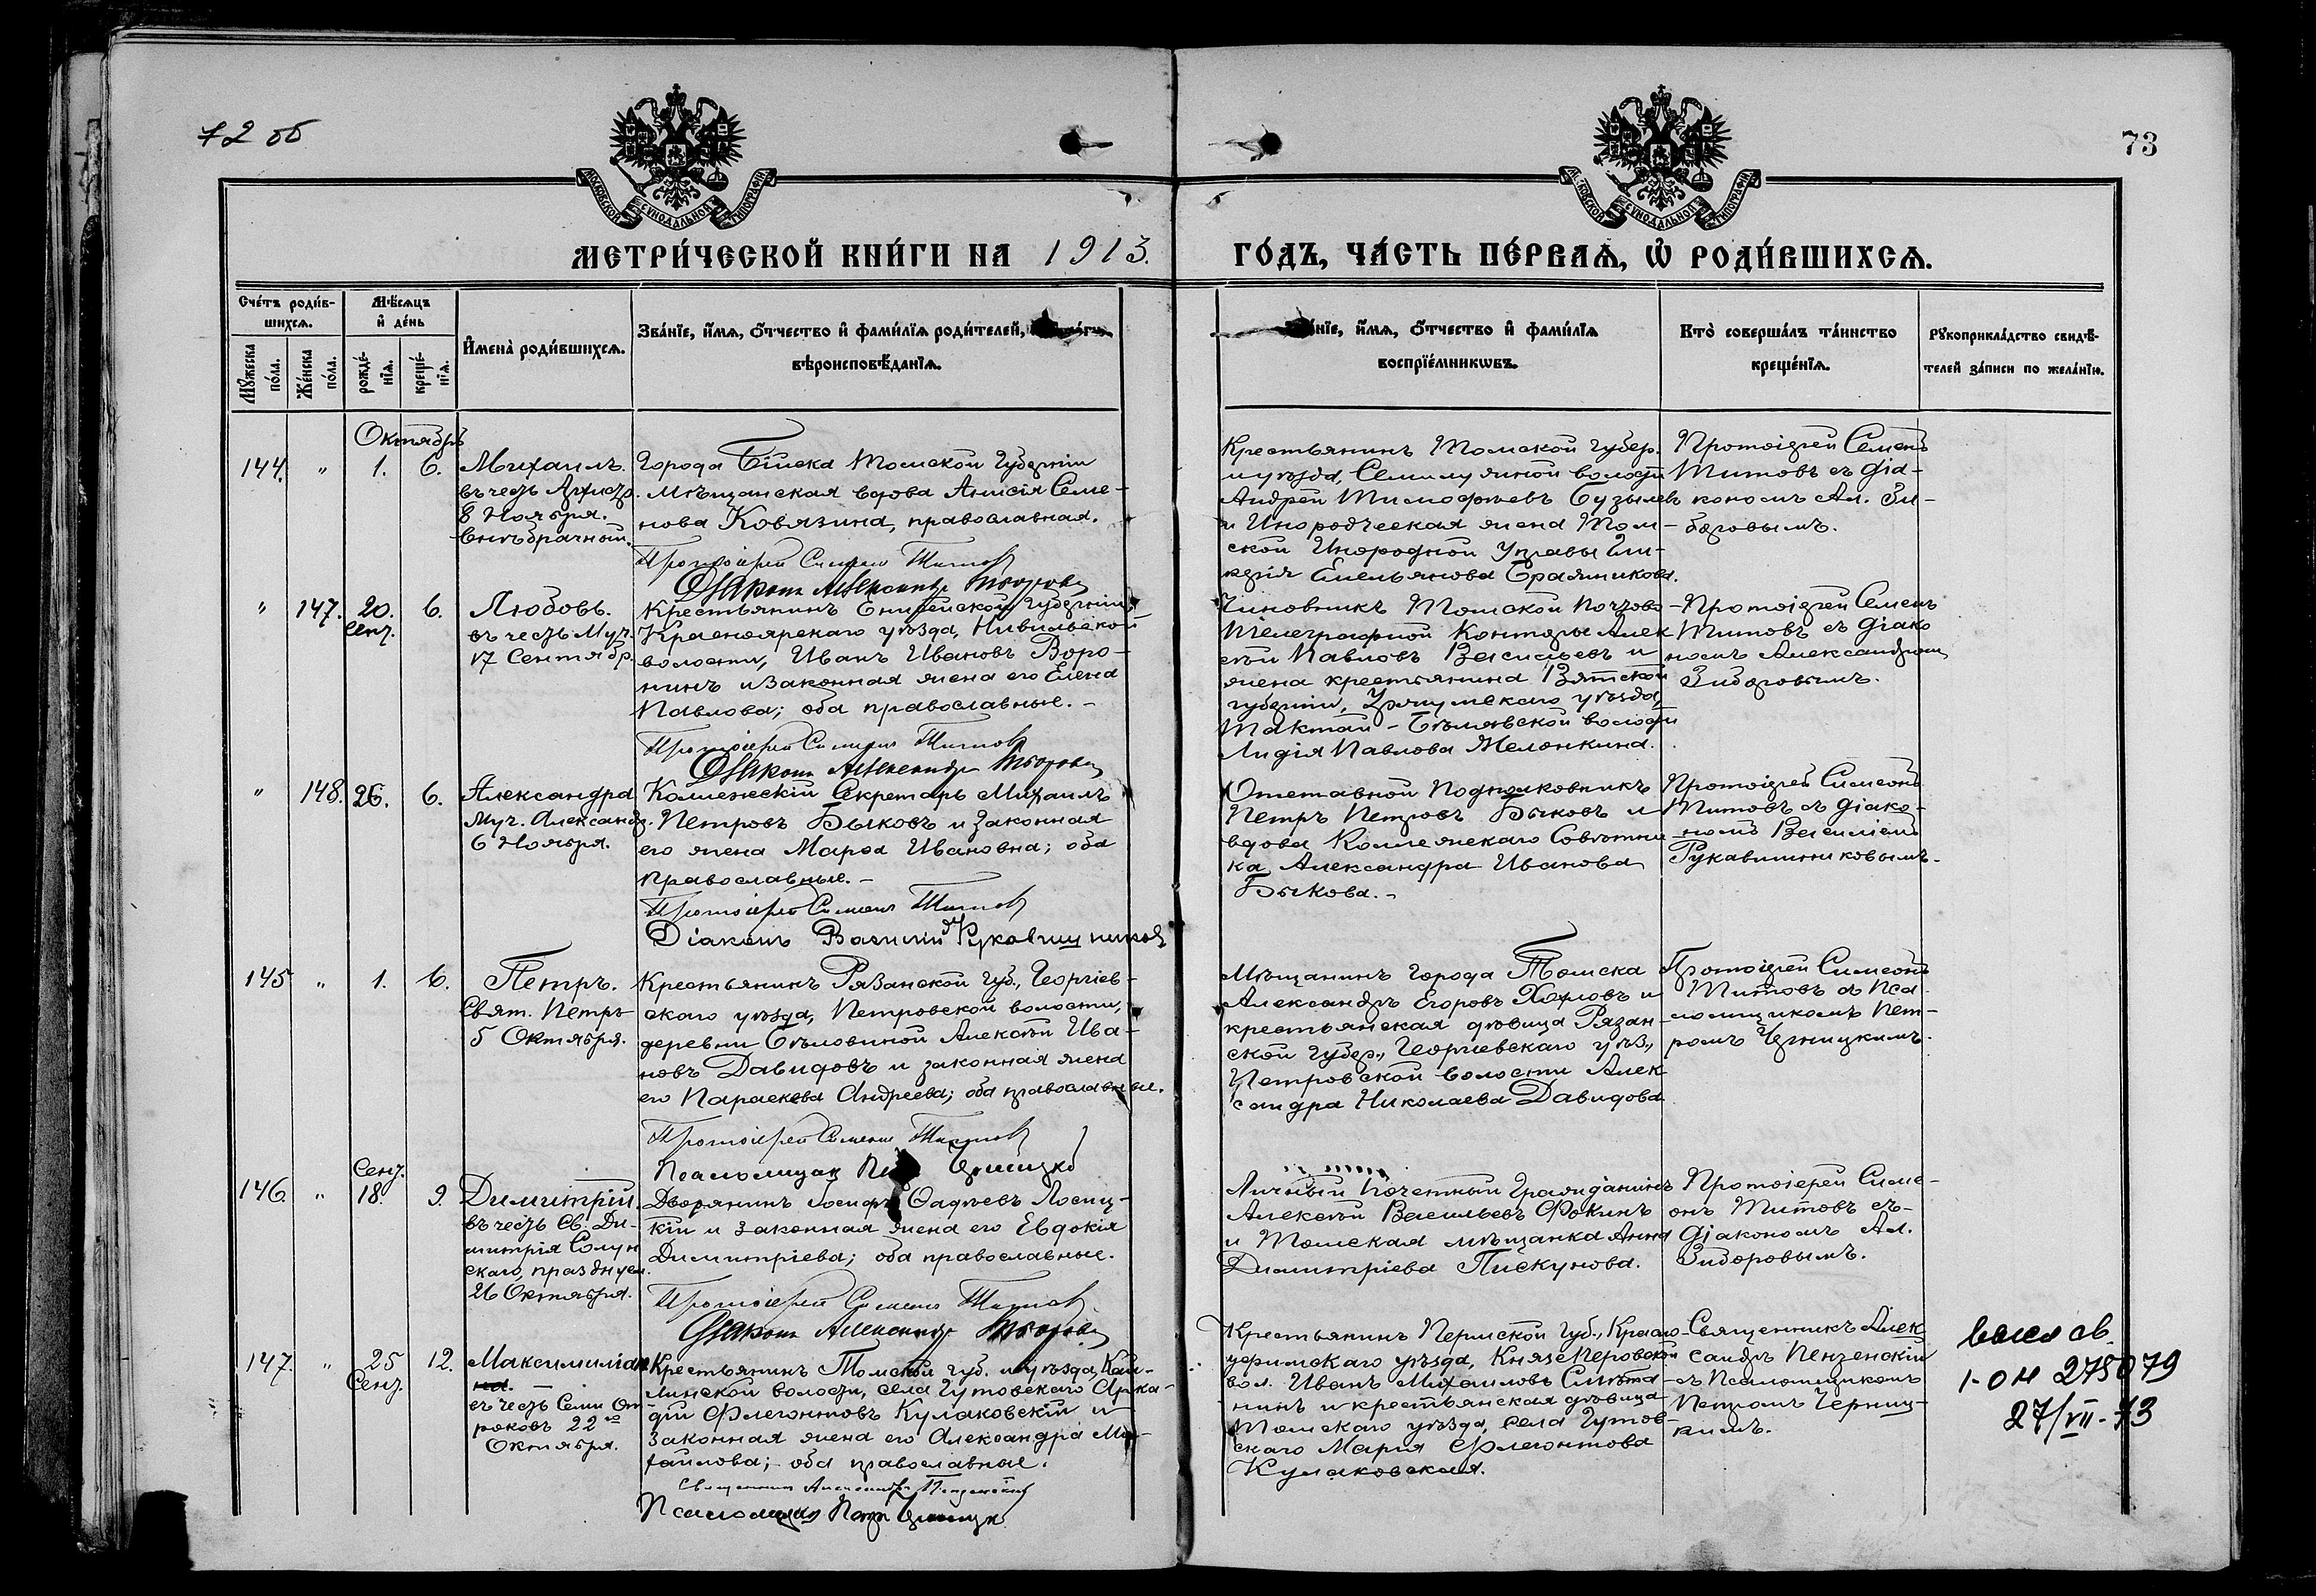 72 об
73
МОСКОВСКОЙ СУНОДАЛЬНОЙ ТИПОГРАФІИ
МОСКОВСКОЙ СУНОДАЛЬНОЙ ТИПОГРАФІИ
МЕТРИ́ЧЕСКОЙ КНИ́ГИ НА 1913.
ГО́ДЪ, ЧА́СТЬ ПЕ́РВАѦ, Ѡ҆ РОДИ́ВШИХСѦ.
Сче́тъ роди́в-
шихсѧ.
Мѣ́сѧцъ
и҆ де́нь
Мꙋ́жеска
по́ла.
Же́нска
по́ла.
рожде́-
нїѧ.
креще́-
нїѧ.
И҆мена̀ роди́вшихсѧ.
Зва́нїе, и҆́мѧ, ѻ҆́тчество и҆ фами́лїѧ роди́телей,
вѣроисповѣ́данїѧ.
нїе, и҆́мѧ, ѻ҆́тчество и҆ фами́лїѧ
воспрїе́мникѡвъ.
Кто̀ соверша́лъ та́инство
креще́нїѧ.
Рꙋкоприкла́дство свидѣ́-
телей за́писи по жела́нїю.
Октябрь
144. " 1. 6. Михаилъ.
въ честь Архистр.
8 Ноября.
Внѣбрачный.
Города Бійска Томской Губерніи
мѣщанская вдова Анисія Семе-
нова Ковязина, православная.
Протоіерей Симеонъ Титовъ
Діаконъ Александръ
Крестьянинъ Томской губер.
и уѣзда, Семилужной волости
Андрей Тимофѣевъ Бузылевъ
и Инородческая жена Том-
ской Инородной Управы
Емельянова
Протоіерей Семенъ
Титовъ съ діа-
кономъ Ал. Зи-
боровымъ.
" 147. 20. 6. Любовь.
Сент.
въ честь Муч.
17 Сентябр.
Крестьянинъ Енисейской Губерніи,
Красноярскаго уѣзда,
волости, Иванъ Ивановъ Воро-
нинъ и законная жена его Елена
Павлова; оба православные.-
Протоіерей Симеонъ Титовъ
Діаконъ Александръ
Чиновникъ Томской Почтово-
Телеграфной Конторы Алек
сѣй Павловъ Васильевъ и
жена крестьянина Вятской
губерніи, Уржумскаго уѣзда,
Токтай-Бѣлявской волости
Лидія Павлова Мелонкина.
Протоіерей Семенъ
Титовъ съ діако
номъ Александромъ
Зиборовымъ.
" 148. 26. 6. Александра
Муч. Александр.
6 Ноября.
Коллежскій Секретарь Михаилъ
Петровъ Быковъ и законная
его жена Марѳа Ивановна; оба
православные.-
Протоіерей Симеонъ Титовъ
Діаконъ Василій Рукавишниковъ
Отставной Подполковникъ
Петръ Петровъ Быковъ и
вдова Коллежскаго Совѣтни
ка Александра Иванова
Быкова.-
Протоіерей Симеонъ
Титовъ съ діако-
номъ Василіемъ
Рукавишниковымъ.
145 " 1. 6. Петръ.
Свят. Петръ
5 Октября.
Крестьянинъ Рязанской Губ., Георгіев-
скаго уѣзда, Петровской волости,
деревни Бѣловиной Алексѣй Ива-
новъ Давидовъ и законная жена
его Параскева Андреева; оба православные.
Протоіерей Симеонъ Титовъ
Псаломщик
Мѣщанинъ города Томска
Александръ Егоровъ Хохловъ и
крестьянская дѣвица Рязан-
ской Губер., Георгіевскаго уѣз.,
Петровской волости Алек
сандра Николаева Давидова
Протоіерей Симеонъ
Титовъ съ пса
ломщикомъ Пет-
ромъ Черницкимъ.
Сент.
146. " 18. 9. Димитрій.
въ честь Св. Ди-
митрія Солун
скаго, празднуем.
26 Октября.
Дворянинъ Іосифъ Ѳадѣевъ Лосиц-
кій и законная жена его Евдокія
Димитріева; оба православные.
Протоіерей Симеонъ Титовъ.
Діаконъ Александръ
Личный Почетный Гражданинъ
Алексѣй Васильевъ Фокинъ
и Томская мѣщанка Анна
Димитріева Пискунова.
Протоіерей Симе-
онъ Титовъ съ-
діакономъ Ал.
Зиборовымъ.
147. " 25 12. Максимиліан
Сент.
въ честь Семи От
роковъ 22го
Октября.
Крестьянинъ Томской губ. и уѣзда, Кай-
линской волости, села Гутовскаго Арка-
дій Флегонтовъ Кулаковскій и
законная жена его Александра Ми-
хайлова; оба православные.
Священникъ Александръ Пензенскій
Псаломщик Петр
Крестьянинъ Пермской Губ., Красно-
уфимскаго уѣзда, Князе-Перовской
вол. Иванъ Михаиловъ Смѣта-
нинъ и крестьянская дѣвица
Томскаго уѣзда, села Гутов-
скаго Марія Флегонтова
Кулаковская.
Священникъ Алек
сандръ Пензенскій
съ Псаломщикомъ
Петромъ Черниц-
кимъ.
св.
I-ОМ 275079
27/VII-73